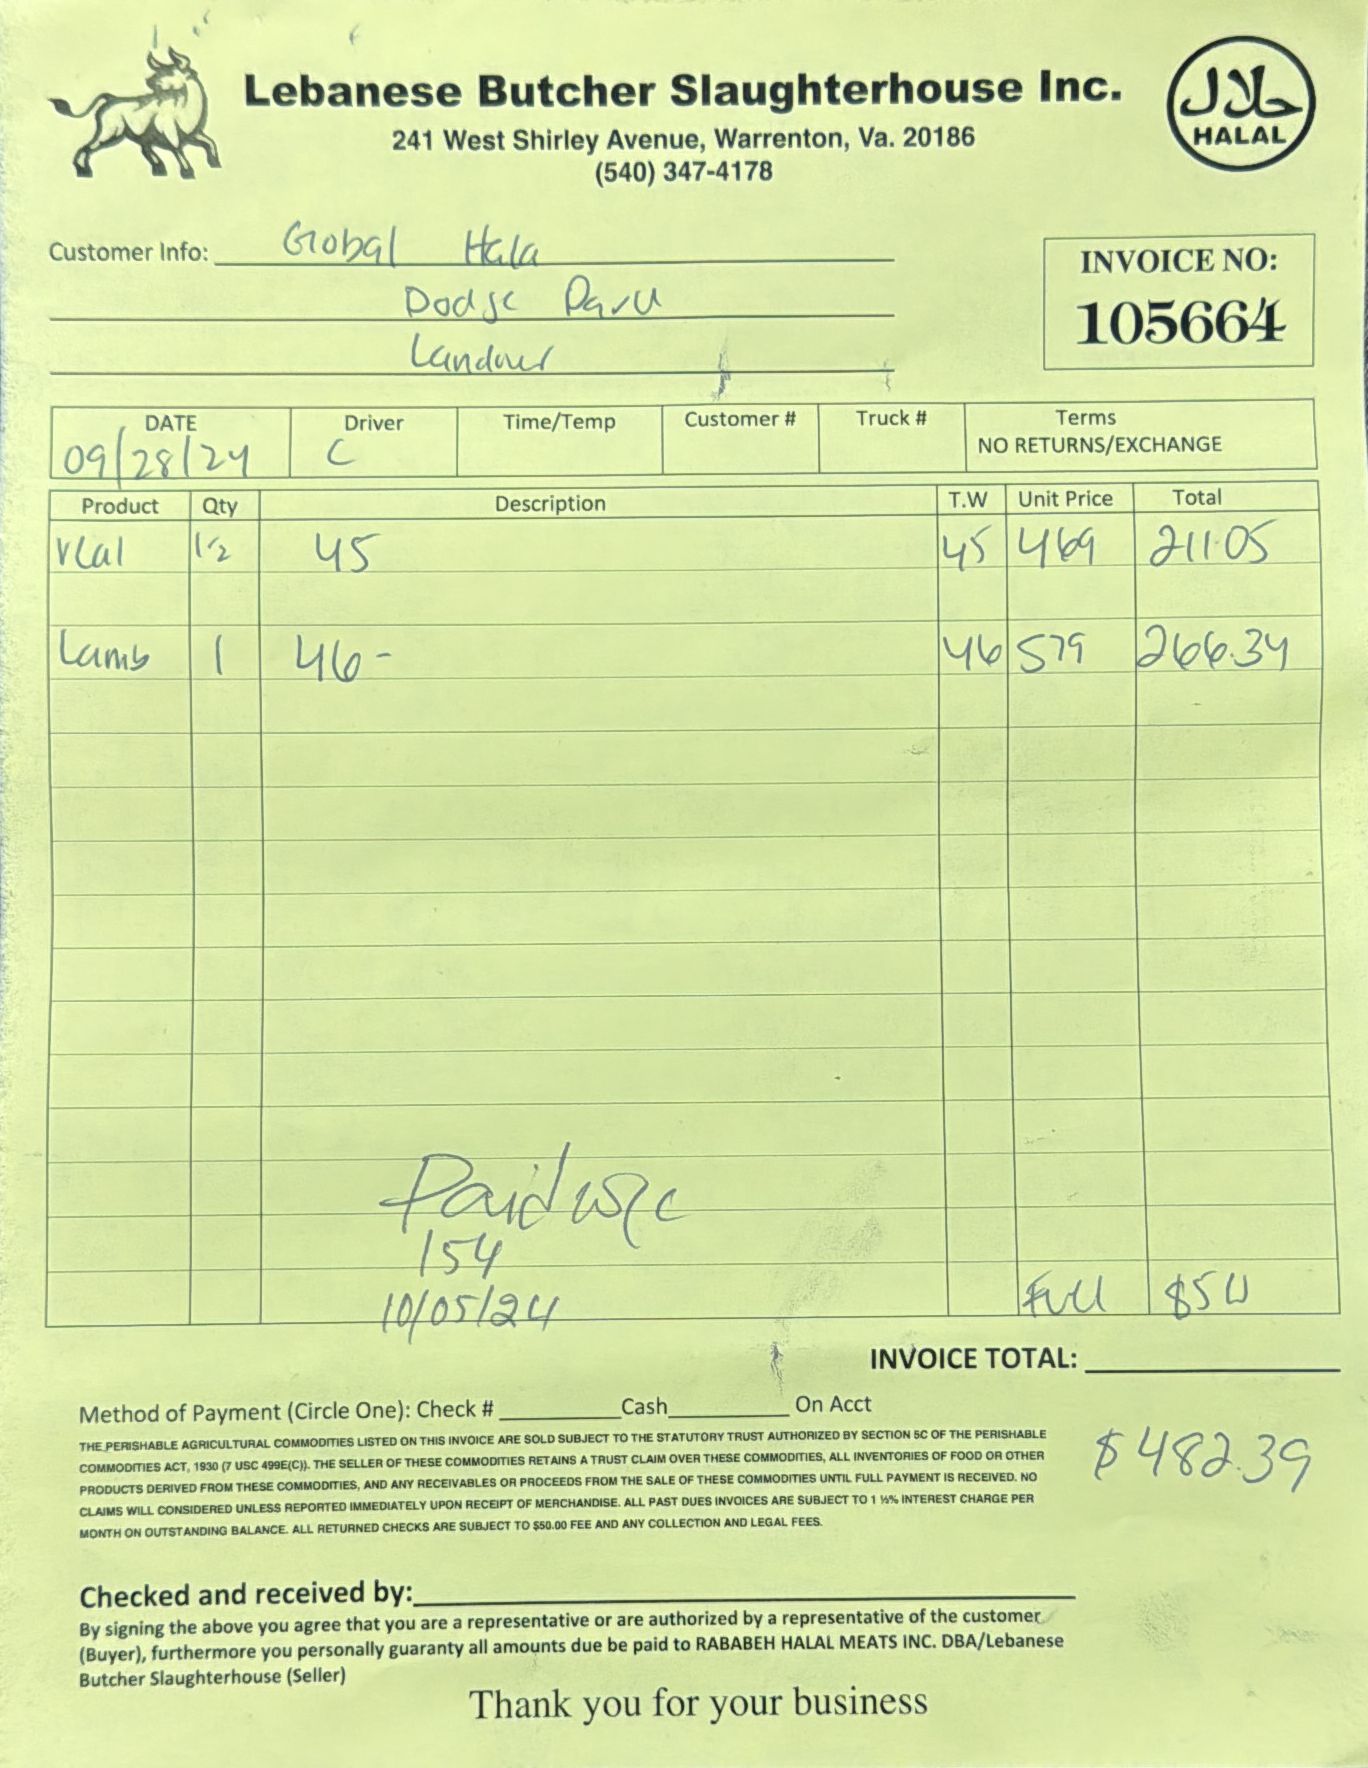 Lebanese Butcher Slaughterhouse Inc.
241 West Shirley Avenue, Warrenton, Va. 20186
(540) 347-4178
حلال
HALAL
Customer Info: Global Hala
Dodge
INVOICE NO:
105664
DATE Driver Time/Temp Customer # Truck # Terms
09/28/24 C NO RETURNS/EXCHANGE
Product Qty Description T.W Unit Price Total
Veal 1-2 45 45 469 211.05
Lamb 1 46- 46 579 266.34
Paid
154
10/05/24
Full $5
INVOICE TOTAL:
$482.39
Method of Payment (Circle One): Check # Cash On Acct
THE PERISHABLE AGRICULTURAL COMMODITIES LISTED ON THIS INVOICE ARE SOLD SUBJECT TO THE STATUTORY TRUST AUTHORIZED BY SECTION 5C OF THE PERISHABLE
COMMODITIES ACT, 1930 (7 USC 499E(C)). THE SELLER OF THESE COMMODITIES RETAINS A TRUST CLAIM OVER THESE COMMODITIES, ALL INVENTORIES OF FOOD OR OTHER
PRODUCTS DERIVED FROM THESE COMMODITIES, AND ANY RECEIVABLES OR PROCEEDS FROM THE SALE OF THESE COMMODITIES UNTIL FULL PAYMENT IS RECEIVED. NO
CLAIMS WILL CONSIDERED UNLESS REPORTED IMMEDIATELY UPON RECEIPT OF MERCHANDISE. ALL PAST DUES INVOICES ARE SUBJECT TO 1 ½% INTEREST CHARGE PER
MONTH ON OUTSTANDING BALANCE. ALL RETURNED CHECKS ARE SUBJECT TO $50.00 FEE AND ANY COLLECTION AND LEGAL FEES.
Checked and received by:
By signing the above you agree that you are a representative or are authorized by a representative of the customer
(Buyer), furthermore you personally guaranty all amounts due be paid to RABABEH HALAL MEATS INC. DBA/Lebanese
Butcher Slaughterhouse (Seller)
Thank you for your business